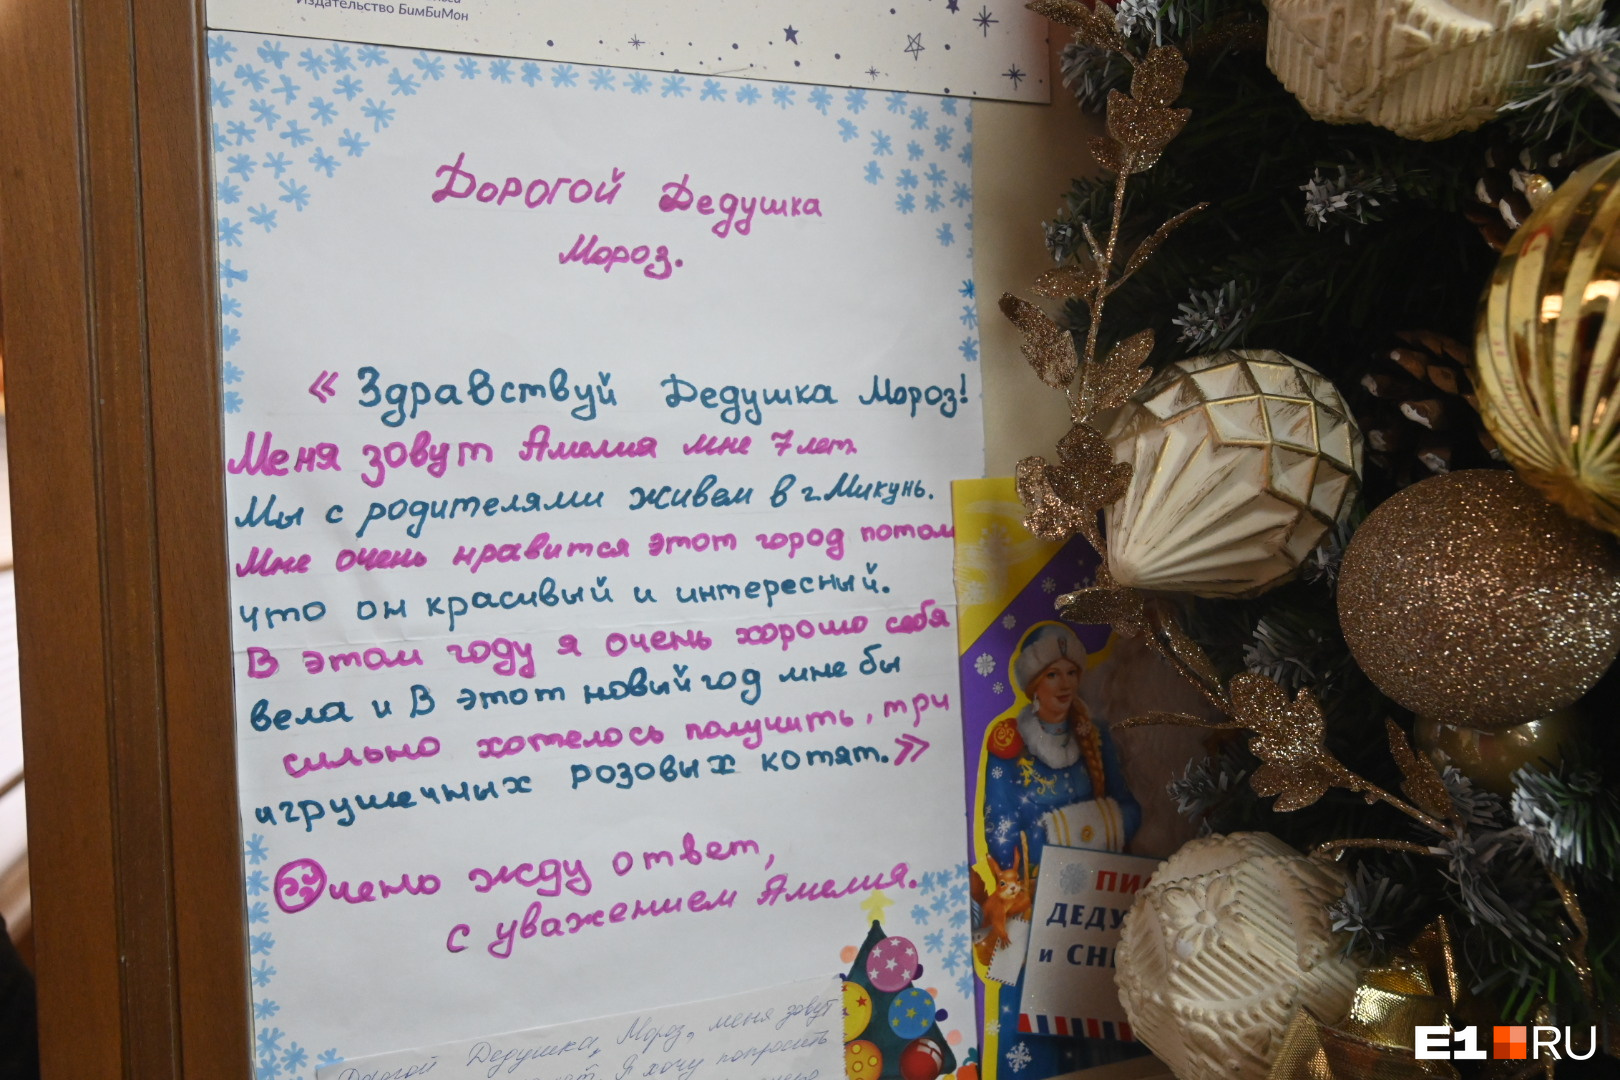 Издательство БимБиМон
Дорогой Дедушка
Мороз.
« Здравствуй Дедушка Мороз!
Меня зовут Амелия мне 7 лет.
Мы с родителями живем в г. Микунь.
Мне очень нравится этот город потом
что он красивый и интересный.
В этом году я очень хорошо себя
вела и В этот новый год мне бы
сильно хотелось получить, три
игрушечных розовых котят.»
Очено жду ответ,
с уважением Амелия.
Дорогой Дедушка, Мороз, меня зовут
Я хочу попросить
ДЕДУ
и СН
E1 RU